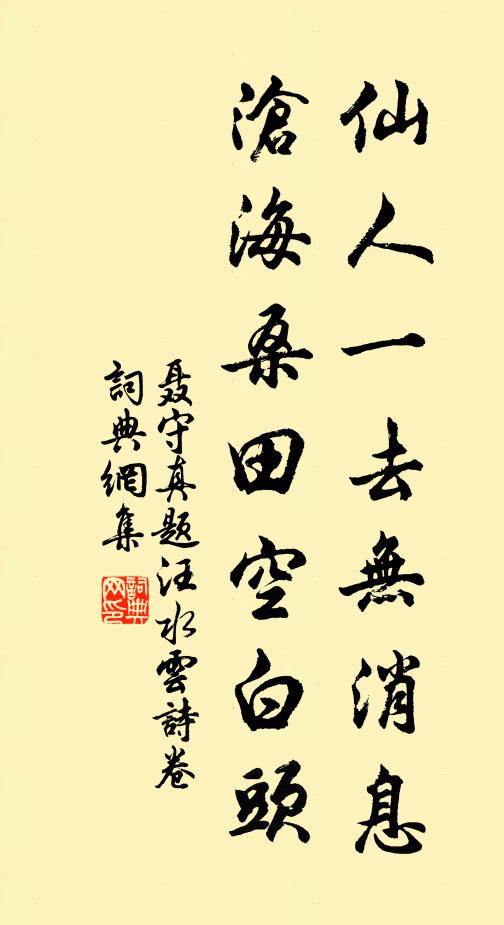 仙人一去無消息
滄海桑田空白頭
聂守真题汪水雲詩卷
詞典網集
詞典
网印